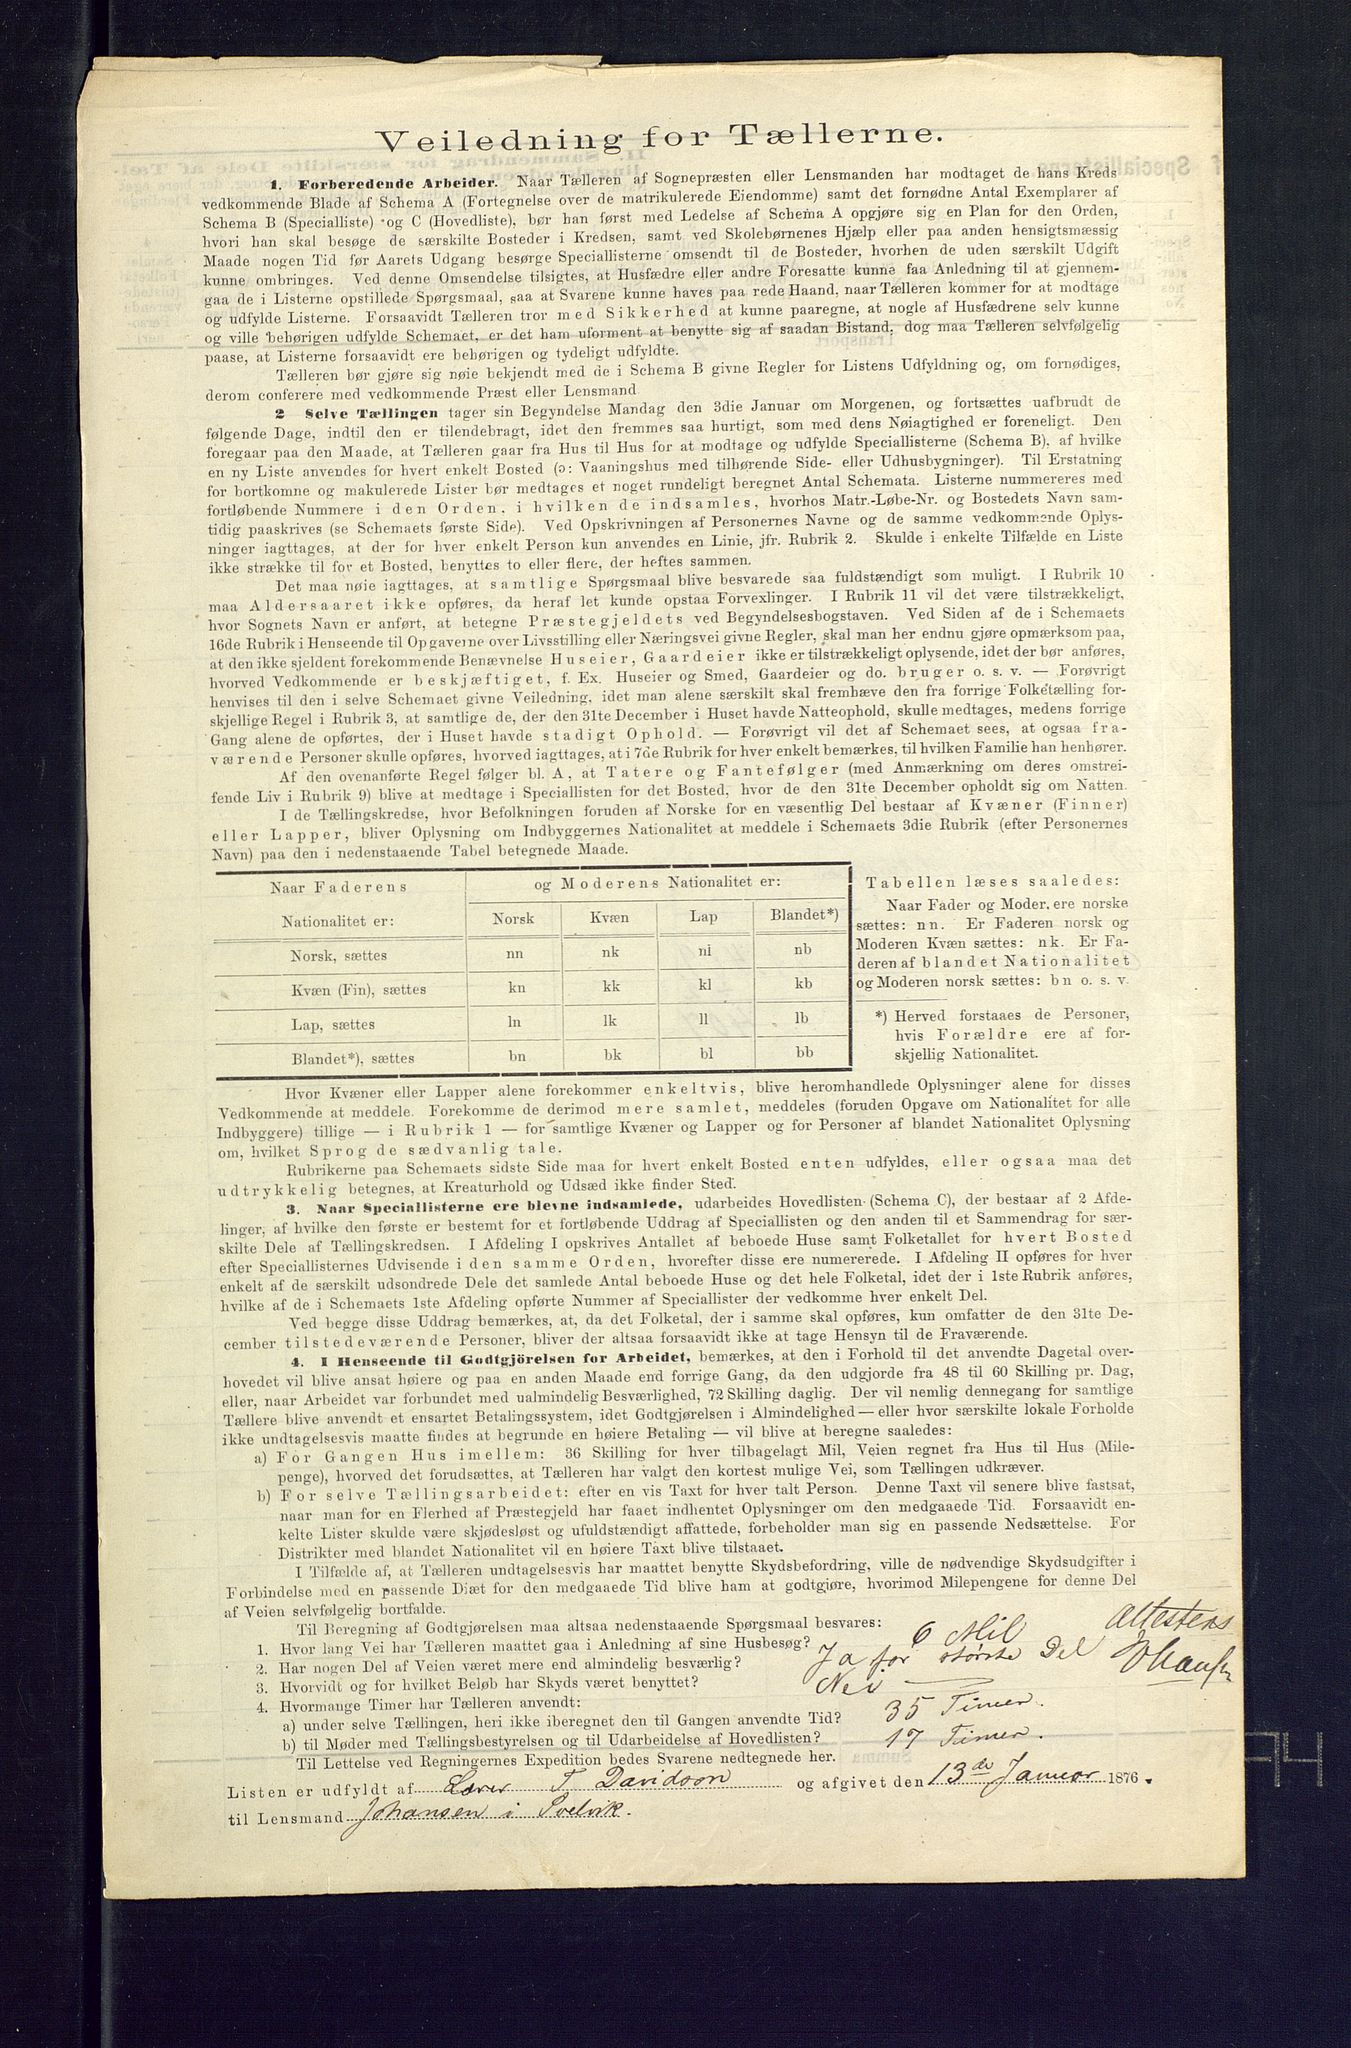 Veiledning for Tællerne.
1. Forberedende Arbeider. Naar Tælleren af Sognepræsten eller Lensmanden har modtaget de hans Kreds
vedkommende Blade af Schema A (Fortegnelse over de matrikulerede Eiendomme) samt det fornødne Antal Exemplarer af
Schema B (Specialliste) og C (Hovedliste), bør han først med Ledelse af Schema A opgjøre sig en Plan for den Orden,
hvori han skal besøge de særskilte Bosteder i Kredsen, samt ved Skolebørnenes Hjælp eller paa anden hensigtsmæssig
Maade nogen Tid før Aarets Udgang besørge Speciallisterne omsendt til de Bosteder, hvorhen de uden særskilt Udgift
kunne ombringes. Ved denne Omsendelse tilsigtes, at Husfædre eller andre Foresatte kunne faa Anledning til at gjennem-
gaa de i Listerne opstillede Spørgsmaal, saa at Svarene kunne haves paa rede Haand, naar Tælleren kommer for at modtage
og udfylde Listerne. Forsaavidt Tælleren tror med Sikkerhed at kunne paaregne, at nogle af Husfædrene selv kunne
og ville behørigen udfylde Schemaet, er det ham uforment at benytte sig af saadan Bistand, dog maa Tælleren selvfølgelig
paase, at Listerne forsaavidt ere behørigen og tydeligt udfyldte.
Tælleren bør gjøre sig nøie bekjendt med de i Schema B givne Regler for Listens Udfyldning og, om fornødiges,
derom conferere med vedkommende Præst eller Lensmand
2 Selve Tællingen tager sin Begyndelse Mandag den 3die Januar om Morgenen, og fortsættes uafbrudt de
følgende Dage, indtil den er tilendebragt, idet den fremmes saa hurtigt, som med dens Nøiagtighed er foreneligt. Den
foregaar paa den Maade, at Tælleren gaar fra Hus til Hus for at modtage og udfylde Speciallisterne (Schema B), af hvilke
en ny Liste anvendes for hvert enkelt Bosted (ɔ: Vaaningshus med tilhørende Side- eller Udhusbygninger). Til Erstatning
for bortkomne og makulerede Lister bør medtages et noget rundeligt beregnet Antal Schemata. Listerne nummereres med
fortløbende Nummere i den Orden, i hvilken de indsamles, hvorhos Matr.-Løbe-Nr. og Bostedets Navn sam-
tidig paaskrives (se Schemaets første Side). Ved Opskrivningen af Personernes Navne og de samme vedkommende Oplys-
ninger iagttages, at der for hver enkelt Person kun anvendes en Linie, jfr. Rubrik 2. Skulde i enkelte Tilfælde en Liste
ikke strække til for et Bosted, benyttes to eller flere, der heftes sammen.
Det maa nøie iagttages, at samtlige Spørgsmaal blive besvarede saa fuldstændigt som muligt. I Rubrik 10
maa Aldersaaret ikke opføres, da heraf let kunde opstaa Forvexlinger. I Rubrik 11 vil det være tilstrækkeligt,
hvor Sognets Navn er anført, at betegne Præstegjeldets ved Begyndelsesbogstaven. Ved Siden af de i Schemaets
16de Rubrik i Henseende til Opgaverne over Livsstilling eller Næringsvei givne Regler, skal man her endnu gjøre opmærksom paa,
at den ikke sjeldent forekommende Benævnelse Huseier, Gaardeier ikke er tilstrækkeligt oplysende, idet der bør anføres,
hvorved Vedkommende er beskjæftiget, f. Ex. Huseier og Smed, Gaardeier og do. bruger o. s. v. — Forøvrigt
henvises til den i selve Schemaet givne Veiledning, idet man alene særskilt skal fremhæve den fra forrige Folketælling for-
skjellige Regel i Rubrik 3, at samtlige de, der den 31te December i Huset havde Natteophold, skulle medtages, medens forrige
Gang alene de opførtes, der i Huset havde stadigt Ophold. — Forøvrigt vil det af Schemaet sees, at ogsaa fra-
værende Personer skulle opføres, hvorved iagttages, at i 7de Rubrik for hver enkelt bemærkes, til hvilken Familie han henhører.
Af den ovenanførte Regel følger bl. A, at Tatere og Fantefølger (med Anmærkning om deres omstrei-
fende Liv i Rubrik 9) blive at medtage i Speciallisten for det Bosted, hvor de den 31te December opholdt sig om Natten.
I de Tællingskredse, hvor Befolkningen foruden af Norske for en væsentlig Del bestaar af Kvæner (Finner)
eller Lapper, bliver Oplysning om Indbyggernes Nationalitet at meddele i Schemaets 3die Rubrik (efter Personernes
Navn) paa den i nedenstaaende Tabel betegnede Maade.
Naar Faderens og Moderens Nationalitet er:
Nationalitet er: Norsk Kvæn Lap Blandet*)
Norsk, sættes nn nk ni nb
Kvæn (Fin), sættes kn kk kl kb
Lap, sættes ln lk ll lb
Blandet*), sættes bn bk bl bb
Tabellen læses saaledes:
Naar Fader og Moder ere norske
sættes: nn. Er Faderen norsk og
Moderen Kvæn sættes: nk. Er Fa-
deren af blandet Nationalitet
og Moderen norsk sættes: bn o. s. v.
*) Herved forstaaes de Personer,
hvis Forældre ere af for-
skjellig Nationalitet.
Hvor Kvæner eller Lapper alene forekommer enkeltvis, blive heromhandlede Oplysninger alene for disses
Vedkommende at meddele. Forekomme de derimod mere samlet, meddeles (foruden Opgave om Nationalitet for alle
Indbyggere) tillige — i Rubrik 1 — for samtlige Kvæner og Lapper og for Personer af blandet Nationalitet Oplysning
om, hvilket Sprog de sædvanlig tale.
Rubrikerne paa Schemaets sidste Side maa for hvert enkelt Bosted enten udfyldes, eller ogsaa maa det
udtrykkelig betegnes, at Kreaturhold og Udsæd ikke finder Sted.
3. Naar Speciallisterne ere blevne indsamlede, udarbeides Hovedlisten (Schema C), der bestaar af 2 Afde-
linger, af hvilke den første er bestemt for et fortløbende Uddrag af Speciallisten og den anden til et Sammendrag for sær-
skilte Dele af Tællingskredsen. I Afdeling I opskrives Antallet af beboede Huse samt Folketallet for hvert Bosted
efter Speciallisternes Udvisende i den samme Orden, hvorefter disse ere numererede. I Afdeling II opføres for hver
enkelt af de særskilt udsondrede Dele det samlede Antal beboede Huse og det hele Folketal, idet der i 1ste Rubrik anføres,
hvilke af de i Schemaets 1ste Afdeling opførte Nummer af Speciallister der vedkomme hver enkelt Del.
Ved begge disse Uddrag bemærkes, at, da det Folketal, der i samme skal opføres, kun omfatter de den 31te De-
cember tilstedeværende Personer, bliver der altsaa forsaavidt ikke at tage Hensyn til de Fraværende.
4. I Henseende til Godtgjörelsen for Arbeidet, bemærkes, at den i Forhold til det anvendte Dagetal over-
hovedet vil blive ansat høiere og paa en anden Maade end forrige Gang, da den udgjorde fra 48 til 60 Skilling pr. Dag,
eller, naar Arbeidet var forbundet med ualmindelig Besværlighed, 72 Skilling daglig. Der vil nemlig dennegang for samtlige
Tællere blive anvendt et ensartet Betalingssystem, idet Godtgjørelsen i Almindelighed — eller hvor særskilte lokale Forholde
ikke undtagelsesvis maatte findes at begrunde en høiere Betaling — vil blive at beregne saaledes:
a) For Gangen Hus imellem: 36 Skilling for hver tilbagelagt Mil, Veien regnet fra Hus til Hus (Mile-
penge), hvorved det forudsættes, at Tælleren har valgt den kortest mulige Vei, som Tællingen udkræver.
b) For selve Tællingsarbeidet: efter en vis Taxt for hver talt Person. Denne Taxt vil senere blive fastsat,
naar man for en Flerhed af Præstegjeld har faaet indhentet Oplysninger om den medgaaede Tid. Forsaavidt en-
kelte Lister skulde være skjødesløst og ufuldstændigt affattede, forbeholder man sig en passende Nedsættelse. For
Distrikter med blandet Nationalitet vil en høiere Taxt blive tilstaaet.
I Tilfælde af, at Tælleren undtagelsesvis har maattet benytte Skydsbefordring, ville de nødvendige Skydsudgifter i
Forbindelse med en passende Diæt for den medgaaede Tid blive ham at godtgjøre, hvorimod Milepengene for denne Del
af Veien selvfølgelig bortfalde.
Til Beregning af Godtgjørelsen maa altsaa nedenstaaende Spørgsmaal besvares:
1. Hvor lang Vei har Tælleren maattet gaa i Anledning af sine Husbesøg? 6 Mil Attesteres
2. Har nogen Del af Veien været mere end almindelig besværlig? Ja for største Del Johansen
3. Hvorvidt og for hvilket Beløb har Skyds været benyttet? Nei
4. Hvormange Timer har Tælleren anvendt:
a) under selve Tællingen, heri ikke iberegnet den til Gangen anvendte Tid? 35 Timer.
b) til Møder med Tællingsbestyrelsen og til Udarbeidelse af Hovedlisten? 17 Timer.
Til Lettelse ved Regningernes Expedition bedes Svarene nedtegnede her.
Listen er udfyldt af Lærer T Davidson og afgivet den 13de Januar 1876.
til Lensmand Johansen i Svelvik.